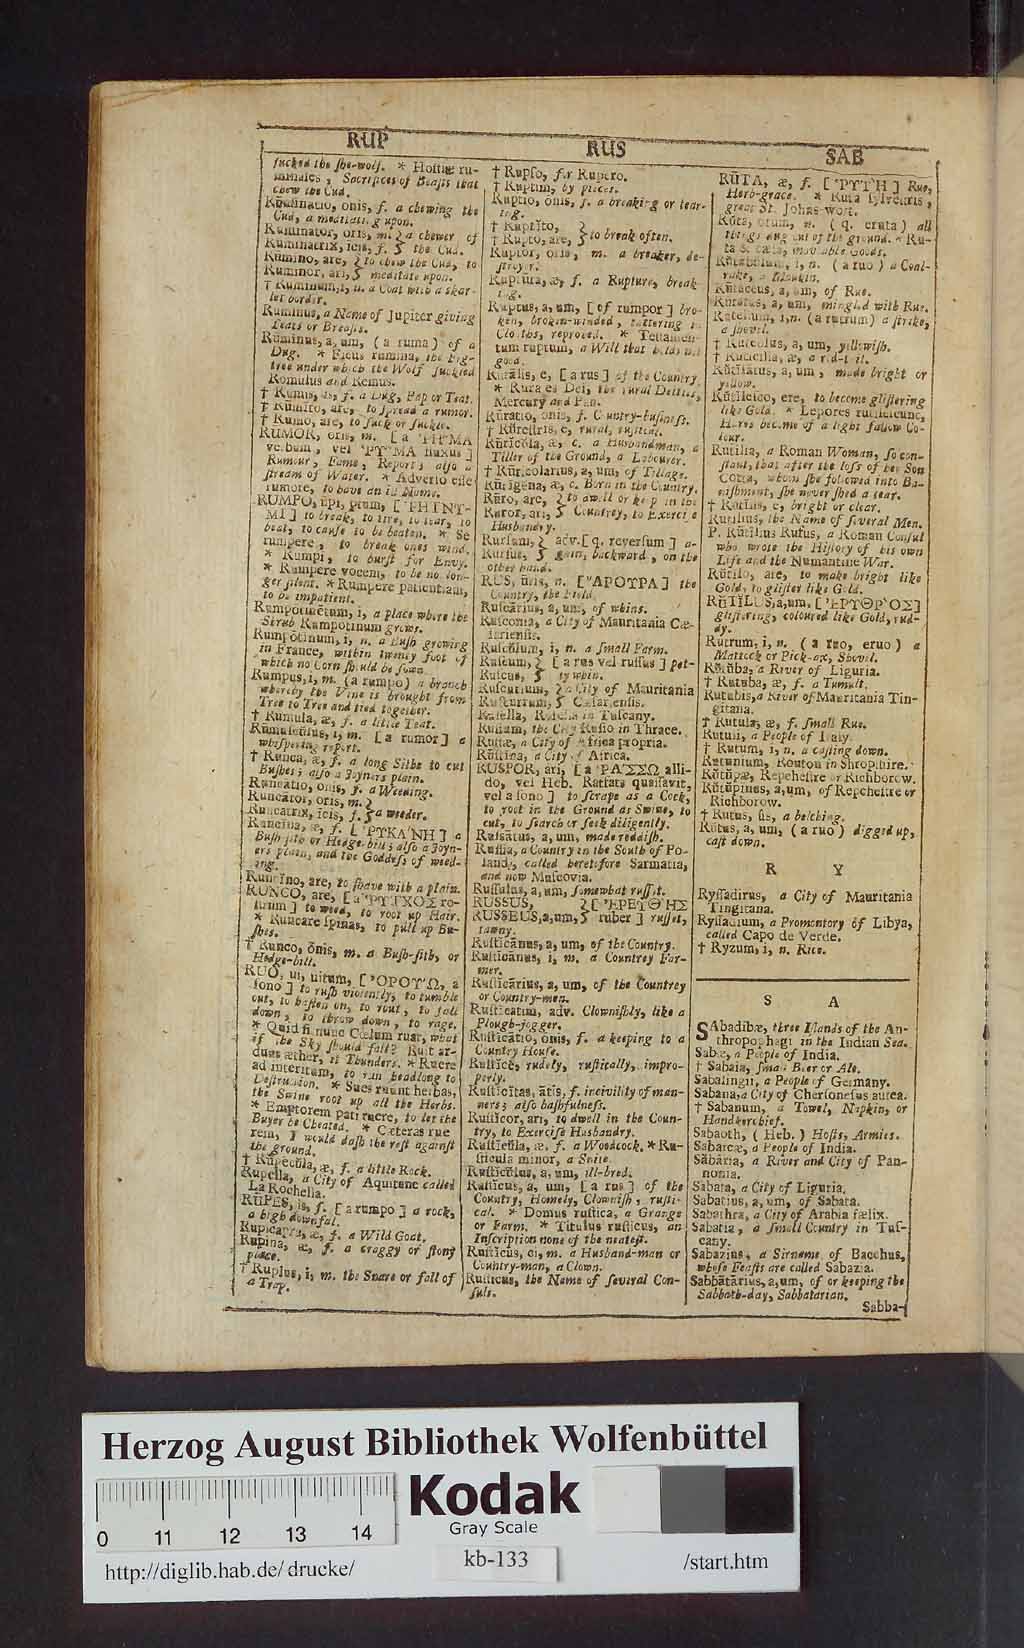 RUP
RUS
SAB
sucked the she-wolf. * Hostiæ ru-
minales, Sacrifices of Beasts that
chew the Cud.
Rūminatio, onis, f. a chewing the
Cud, a meditating upon.
Ruminator, oris, m. } a chewer of
Ruminatrix, icis, f. } the Cud.
Rumino, are, } to chew the Cud, to
Ruminor, ari, } meditate upon.
† Ruminum, i, n. a Coat with a skar-
let border.
Ruminus, a Name of Jupiter giving
Teats or Breasts.
Rūminus, a, um, (a ruma) of a
Dug. * Ficus rumina, the Fig-
tree under which the Wolf suckled
Romulus and Remus.
† Rumis, is, f. a Dug, Pap or Teat.
† Rumito, are, to spread a rumor.
† Rumo, are, to suck or suckle.
RUMOR, oris, m. [a ῬΗ͂ΜΑ
verbum, vel ῬΥ͂ΜΑ fluxus]
Rumour, Fame, Report; also a
stream of Water. * Adverso esse
rumore, to have an ill Name.
RUMPO, ūpi, ptum, [ῬΗΓΝΥ-
ΜΙ] to break, to tire, to tear, to
beat, to cause to be beaten. * Se
rumpere, to break ones wind.
* Rumpi, to burst for Envy.
* Rumpere vocem, to be no lon-
ger silent. * Rumpere patientiam,
to be impatient.
Rumpotinētum, i, a place where the
Shrub Rumpotinum grows.
Rumpŏtinum, i, n. a Bush growing
in France, within twenty foot of
which no Corn should be sown.
Rumpus, i, m. (a rumpo) a branch
whereby the Vine is brought from
Tree to Tree and tied together.
† Rumula, æ, f. a little Teat.
Rūmuscŭlus, i, m. [a rumor] a
whispering report.
† Runca, æ, f. a long Sithe to cut
Bushes; also a Joyners plain.
Runcatio, onis, f. a Weeding.
Runcātor, oris, m. }
Runcatrix, icis, f. } a weeder.
Runcīna, æ, f. [ῬΥΚΑ΄ΝΗ] a
Bush sith or Hedge-bill; also a Joyn-
ers plain, and the Goddess of weed-
ing.
Runcīno, are, to shave with a plain.
RUNCO, are, [a ῬΥΓΧΟΣ ro-
strum] to weed, to root up Hair.
* Runcare spinas, to pull up Bu-
shes.
† Runco, ōnis, m. a Bush-sith, or
Hedge-bill.
RUO, ui, uitum, [ὈΡΟΥΏ, a
sono] to rush violently, to tumble
out, to hasten on, to rout, to fall
down, to throw down, to rage.
* Quid si nunc Cœlum ruat, what
if the Sky should fall? Ruit ar-
duus æther, it Thunders. * Ruere
ad interitum, to run headlong to
Destruction. * Sues ruunt herbas,
the Swine root up all the Herbs.
* Emptorem pati ruere, to let the
Buyer be Cheated. * Cæteras rue
rem, I would dash the rest against
the ground.
† Rūpecŭla, æ, f. a little Rock.
Rupella, a City of Aquitane called
La Rochella.
RŪPES, is, f. [a rumpo] a rock,
a high downfal.
Rupicapra, æ, f. a Wild Goat.
Rupina, æ, f. a craggy or stony
place.
† Ruplus, i, m. the Snare or fall of
a Trap.
† Rupso, for Rupero.
† Ruptim, by pieces.
Ruptio, ōnis, f. a breaking or tear-
ing.
† Ruptĭto, }
† Rupto, are, } to break often.
Ruptor, oris, m. a breaker, de-
stroyer.
Ruptūra, æ, f. a Rupture, break-
ing.
Ruptus, a, um, [of rumpor] bro-
ken, broken-winded, tottering in
Cloaths, reproved. * Testamen-
tum ruptum, a Will that holds not
good.
Rūrālis, e, [a rus] of the Country.
* Rurales Dei, the rural Deities,
Mercury and Pan.
Rūratio, onis, f. Country-business.
† Rūrestris, e, rural, rustical.
Rūrĭcŏla, æ, c. a Husbandman, a
Tiller of the Ground, a Labourer.
† Rūricolarius, a, um, of Tillage.
Rūrigena, æ, c. Born in the Country.
Rūro, are, } to dwell or keep in the
Ruror, ari, } Countrey, to Exercise
Husbandry.
Rursum, } adv. [q. reversum] a-
Rursus, } gain, backward, on the
other hand.
RUS, ūris, n. [ἌΡΟΥΡΑ] the
Country, the Field.
Ruscārius, a, um, of whins.
Rusconia, a City of Mauritania Cæ-
sariensis.
Ruscŭlum, i, n. a small Farm.
Ruscum, } [a rus vel russus] pet-
Ruscus, } ty whin.
Ruscurium, } a City of Mauritania
Rusturrum, } Cæsariensis.
Rusella, Roscha in Tuscany.
Rusiam, the City Rusio in Thrace.
Ruspæ, a City of Africa propria.
Rūspina, a City of Africa.
RUSPOR, ari, [a ῬΑ΄ΣΣΩ alli-
do, vel Heb. Ratsats quassavit,
vel a sono] to scrape as a Cock,
to root in the Ground as Swine, to
cut, to search or seek diligently.
Russātus, a, um, made reddish.
Russia, a Country in the South of Po-
land, called heretofore Sarmatia,
and now Muscovia.
Russulus, a, um, somewhat russet.
RUSSUS, } [ἘΡΕΥΘΉΣ
RUSSEUS, a, um, } ruber] russet,
tawny.
Rusticānus, a, um, of the Country.
Rusticānus, i, m. a Countrey Far-
mer.
Rusticārius, a, um, of the Countrey
or Country-men.
Rusticatim, adv. Clownishly, like a
Plough-jogger.
Rusticatio, onis, f. a keeping to a
Country House.
Rusticē, rudely, rustically, impro-
perly.
Rusticĭtas, ātis, f. incivility of man-
ners; also bashfulness.
Rusticor, ari, to dwell in the Coun-
try, to Exercise Husbandry.
Rusticŭla, æ, f. a Woodcock. * Ru-
sticula minor, a Snite.
Rusticŭlus, a, um, ill-bred.
Rusticus, a, um, [a rus] of the
Country, Homely, Clownish, rusti-
cal. * Domus rustica, a Grange
or Farm. * Titulus rusticus, an
Inscription none of the neatest.
Rusticus, ci, m. a Husband-man or
Country-man, a Clown.
Rusticus, the Name of several Con-
suls.
RŪTA, æ, f. [ῬΥΤΉ] Rue,
Herb-grace. * Ruta sylvestris,
great St. Johns-wort.
Rūta, orum, n. (q. eruta) all
things dug out of the ground. * Ru-
ta & cæsa, moveable Goods.
Rūtabŭlum, i, n. (a ruo) a Coal-
rake, a Maukin.
Rūtaceus, a, um, of Rue.
Rutatus, a, um, mingled with Rue.
Rutellum, i, n. (a rutrum) a strike,
a shovel.
† Ruteolus, a, um, yellowish.
† Ruticilla, æ, a red-tail.
Rūtilatus, a, um, made bright or
yellow.
Rūtilesco, ere, to become glistering
like Gold. * Lepores rutilescunt,
Hares become of a light fallow Co-
lour.
Rutilia, a Roman Woman, so con-
stant, that after the loss of her Son
Cotta, whom she followed into Ba-
nishment, she never shed a tear.
† Rutilis, e, bright or clear.
Rutilius, the Name of several Men.
P. Rūtilius Rufus, a Roman Consul
who wrote the History of his own
Life and the Numantine War.
Rūtilo, are, to make bright like
Gold, to glister like Gold.
RŪTĬLUS, a, um, [ἘΡΥΘΡΌΣ]
glistering, coloured like Gold, rud-
dy.
Rutrum, i, n. (a ruo, eruo) a
Mattock or Pick-ax, Shovel.
Rūtŭba, a River of Liguria.
† Rutuba, æ, f. a Tumult.
Rutubis, a River of Mauritania Tin-
gitana.
† Rutula, æ, f. small Rue.
Rutuli, a People of Italy.
† Rutum, i, n. a casting down.
Rutunium, Routon in Shropshire.
Rūtŭpæ, Repchestre or Richborow.
Rūtūpinus, a, um, of Repchestre or
Richborow.
† Rutus, ûs, a belching.
Rutus, a, um, (a ruo) digged up,
cast down.
R Y
Ryssadirus, a City of Mauritania
Tingitana.
Ryssadium, a Promontory of Libya,
called Capo de Verde.
† Ryzum, i, n. Rice.
S A
SAbadibæ, three Islands of the An-
thropophagi in the Indian Sea.
Sabæ, a People of India.
† Sabaia, small Beer or Ale.
Sabalingii, a People of Germany.
Sabana, a City of Chersonesus aurea.
† Sabanum, a Towel, Napkin, or
Handkerchief.
Sabaoth, (Heb.) Hosts, Armies.
Sabarcæ, a People of India.
Sabāria, a River and City of Pan-
nonia.
Sabata, a City of Liguria.
Sabatius, a, um, of Sabata.
Sabathra, a City of Arabia fælix.
Sabatia, a small Country in Tus-
cany.
Sabazius, a Sirname of Bacchus,
whose Feasts are called Sabazia.
Sabbātārius, a, um, of or keeping the
Sabbath-day, Sabbatarian.
Sabba-
Herzog August Bibliothek Wolfenbüttel
Kodak
Gray Scale
0 11 12 13 14
kb-133
http://diglib.hab.de/drucke/
/start.htm